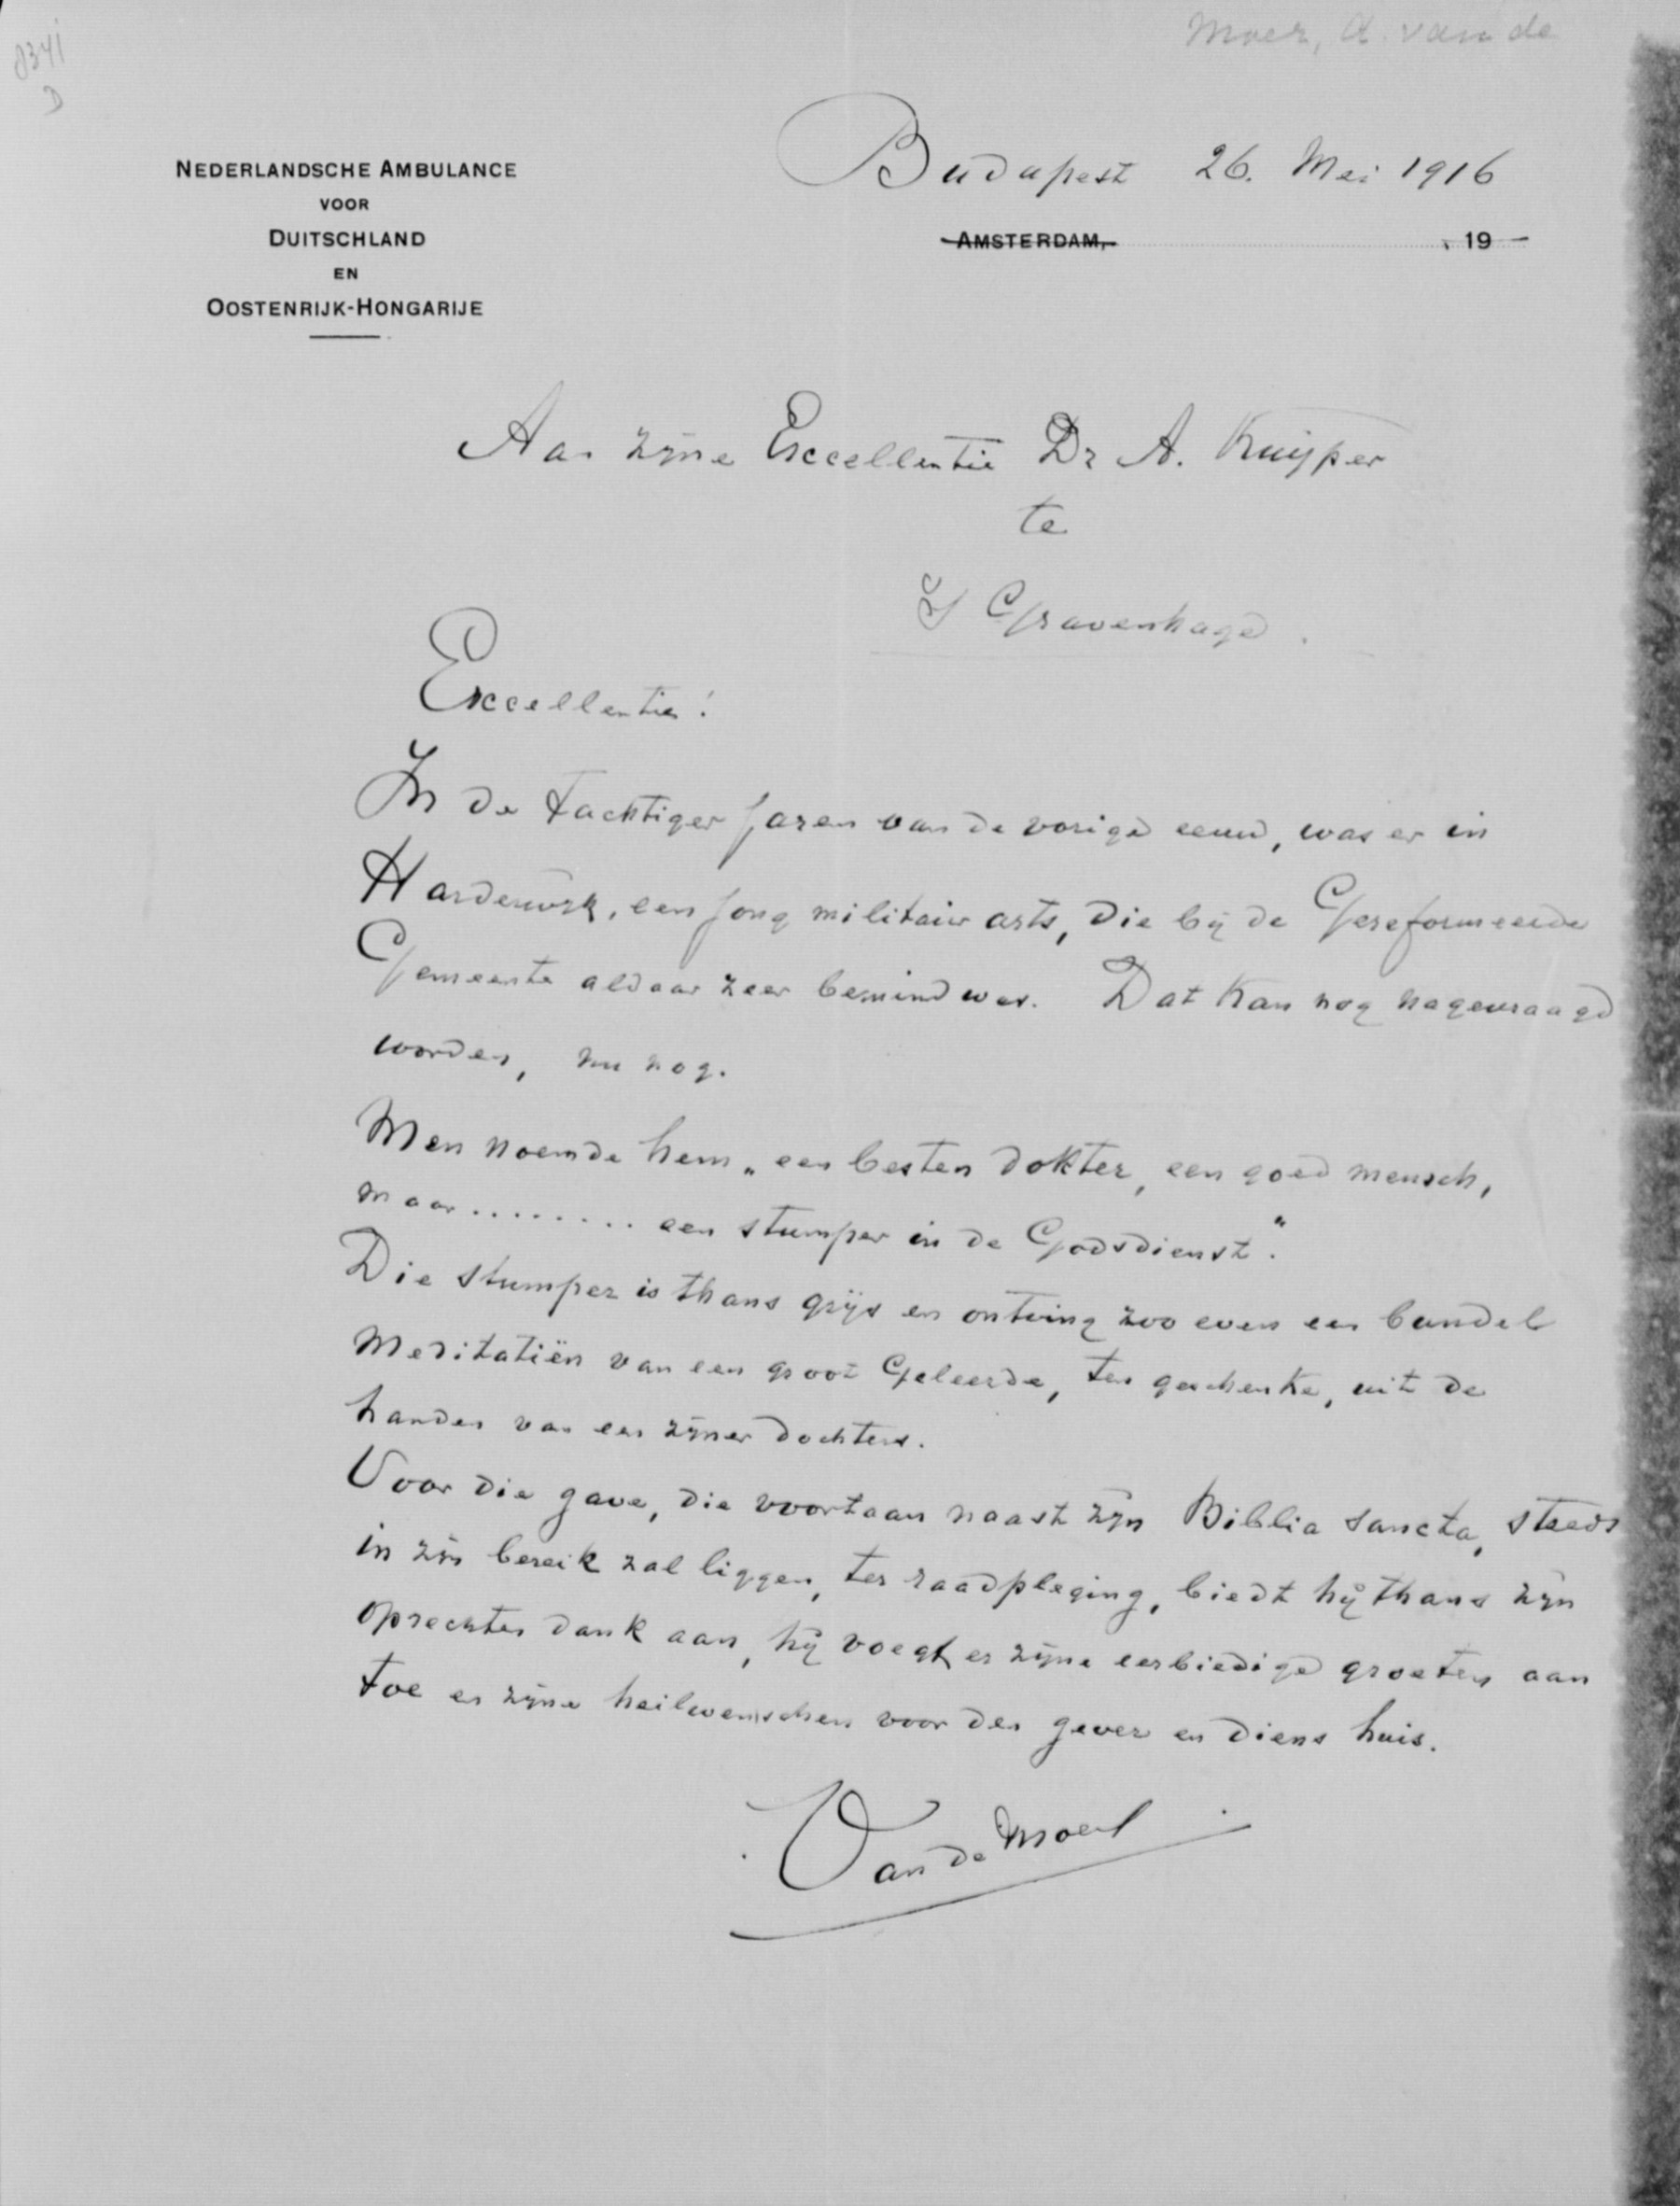 8341
D
Moer, A. van de
NEDERLANDSCHE AMBULANCE
VOOR
DUITSCHLAND
EN
OOSTENRIJK-HONGARIJE
Budapest 26. Mei 1916
AMSTERDAM, 19
Aan zijne Excellentie Dr A. Kuijper
te
S Gravenhage.
Excellentie!
In de tachtiger jaren van de vorige eeuw, was er in
Harderwijk, een jong militair arts, die bij de Gereformeerde
Gemeente aldaar zeer bemind was. Dat kan nog nagevraagd
worden, nu nog.
Men noemde hem „een besten dokter, een goed mensch,
maar ........ een stumper in de Godsdienst."
Die stumper is thans grijs en ontving zoo even een bundel
Meditatiën van een groot Geleerde, ten geschenke, uit de
handen van een zijner dochters.
Voor die gave, die voortaan naast zijn Biblia Sancta, steeds
in zijn bereik zal liggen, ter raadpleging, biedt hij thans zijn
oprechten dank aan, hij voegt er zijne eerbiedige groeten aan
toe en zijne heilwenschen voor den gever en diens huis.
Van de Moer